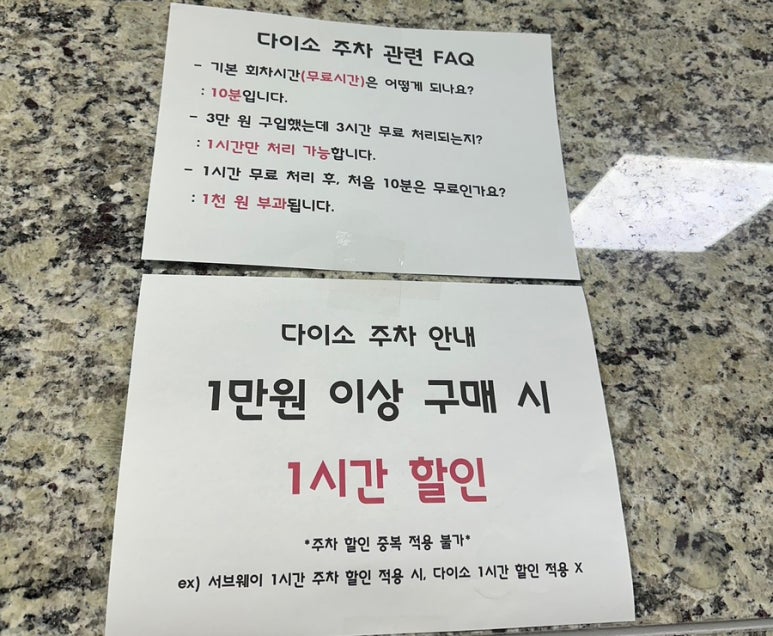 다이소 주차 관련 FAQ
- 기본 회차시간(무료시간)은 어떻게 되나요?
: 10분입니다.
- 3만 원 구입했는데 3시간 무료 처리되는지?
: 1시간만 처리 가능합니다.
- 1시간 무료 처리 후, 처음 10분은 무료인가요?
: 1천 원 부과됩니다.
다이소 주차 안내
1만원 이상 구매 시
1시간 할인
*주차 할인 중복 적용 불가*
ex) 서브웨이 1시간 주차 할인 적용 시, 다이소 1시간 할인 적용 X